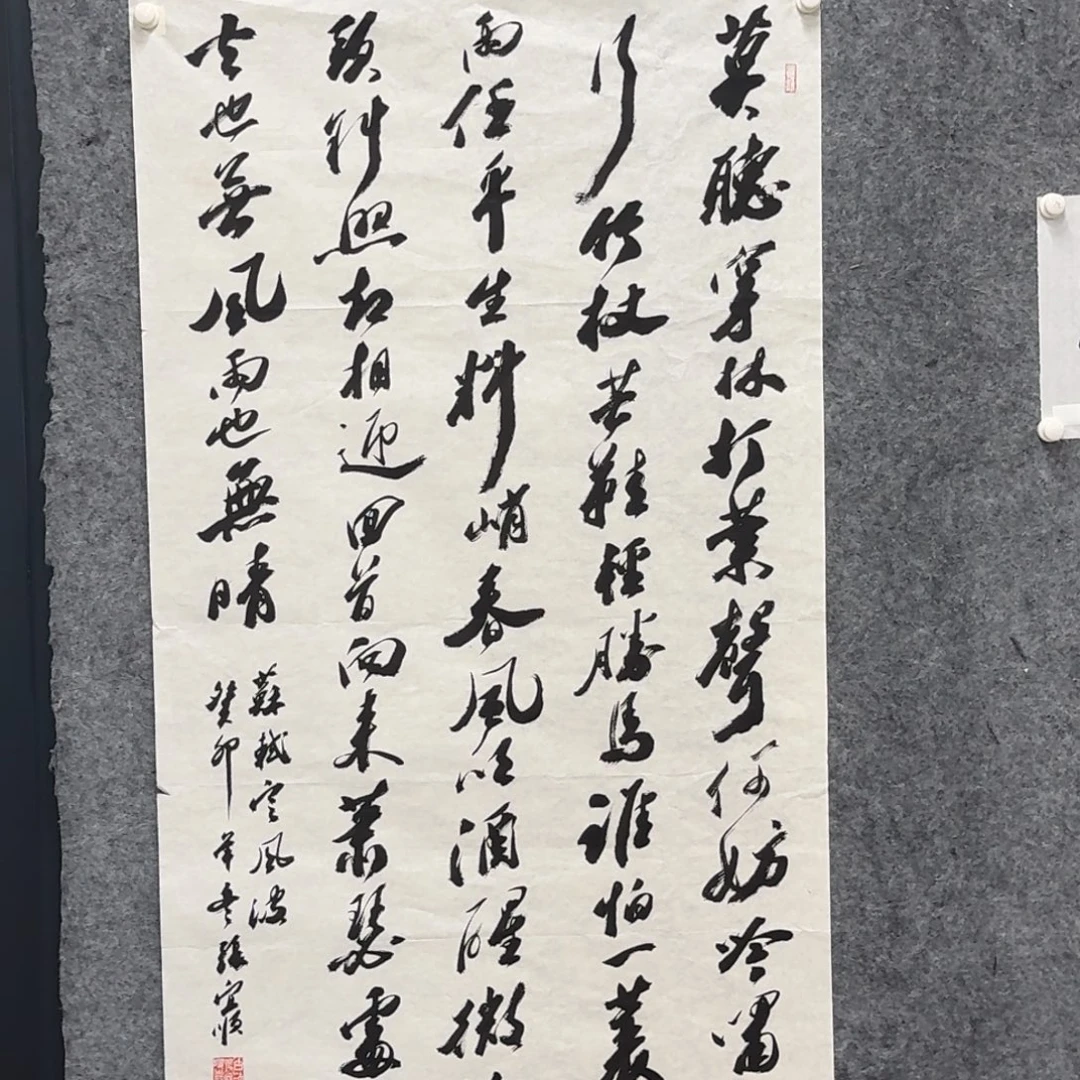 莫聽穿林打葉聲何妨吟嘯
行竹杖芒鞋輕勝馬誰怕一蓑
雨任平生料峭春風吹酒醒微
頭斜照却相迎回首向来蕭瑟處
去也無風雨也無晴
蘇軾定風波
癸卯